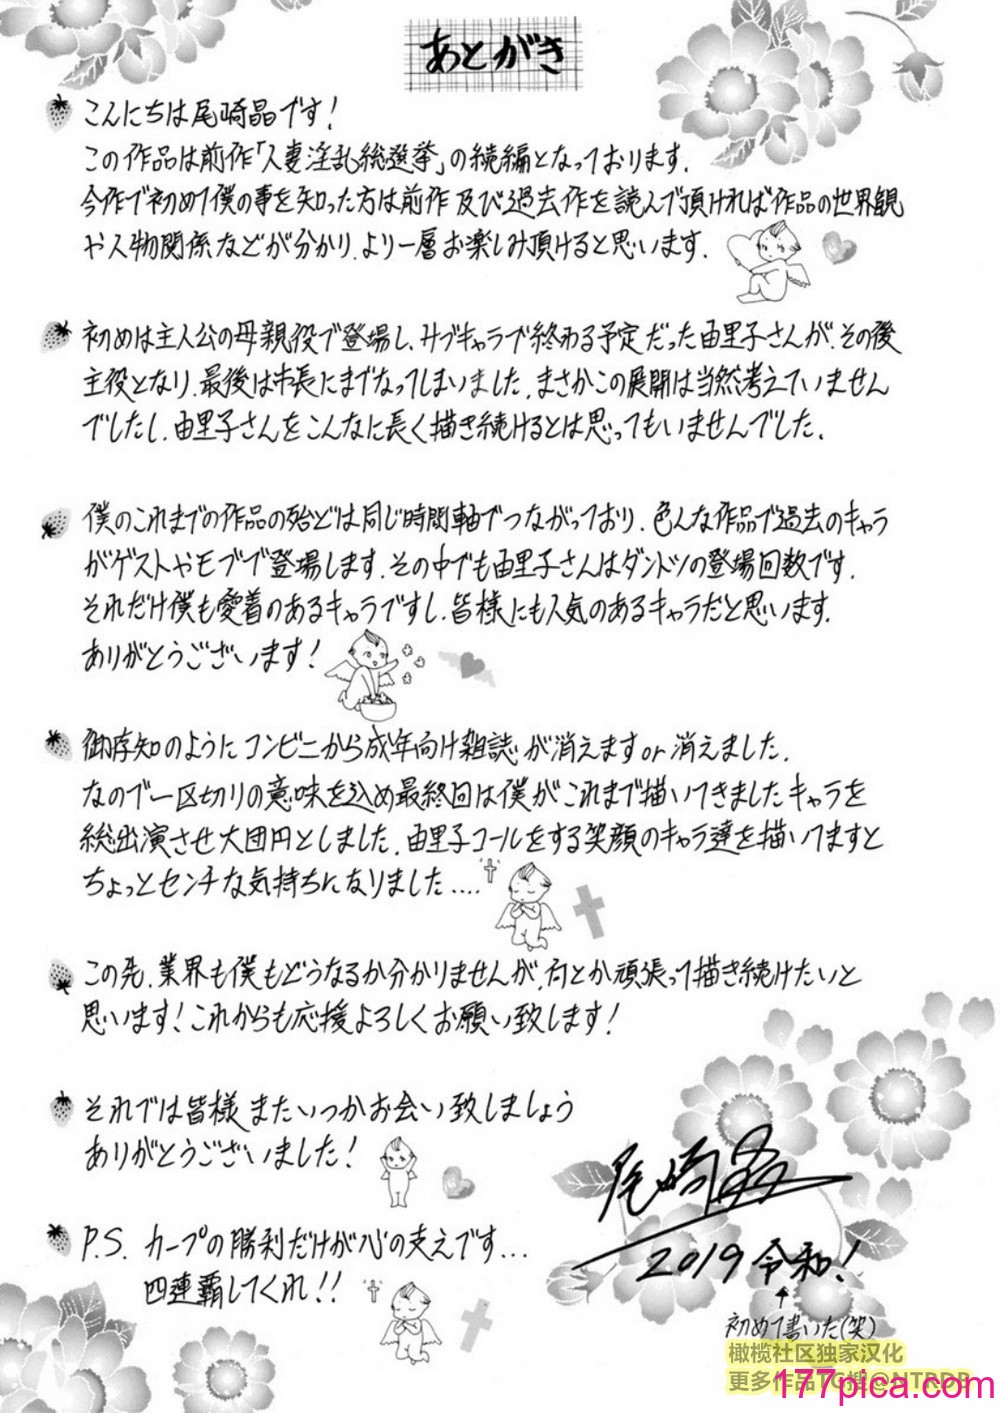 あとがき
こんにちは尾崎晶です!
この作品は前作「人妻淫乱総選挙」の続編となっております.
今作で初めて僕の事を知った方は前作及び過去作を読んで頂ければ作品の世界観
や人物関係などが分かり.より一層お楽しみ頂けると思います.
初めは主人公の母親役で登場し、サブキャラで終わる予定だった由里子さんが.その後
主役となり.最後は市長にまでなってしまいました.まさかこの展開は当然考えていません
でしたし.由里子さんをこんなに長く描き続けるとは思ってもいませんでした.
僕のこれまでの作品の殆どは同じ時間軸でつながっており.色んな作品で過去のキャラ
がゲストやモブで登場します.その中でも由里子さんはダントツの登場回数です.
それだけ僕も愛着のあるキャラですし.皆様にも人気のあるキャラだと思います.
ありがとうございます!
御存知のようにコンビニから成年向け雑誌が消えますor消えました.
なので一区切りの意味を込め最終回は僕がこれまで描いてきましたキャラを
総出演させ大団円としました.由里子コールをする笑顔のキャラ達を描いてますと
ちょっとセンチな気持ちになりました....
この先.業界も僕もどうなるか分かりませんが.何とか頑張って描き続けたいと
思います!これからも応援よろしくお願い致します!
それでは皆様またいつかお会い致しましょう
ありがとうございました!
P.S. カープの勝利だけが心の支えです...
四連覇してくれ!!
尾崎晶
2019令和!
初めて書いた(笑)
橄榄社区独家汉化
更多作品TG搜@NTRDB
177pica.com